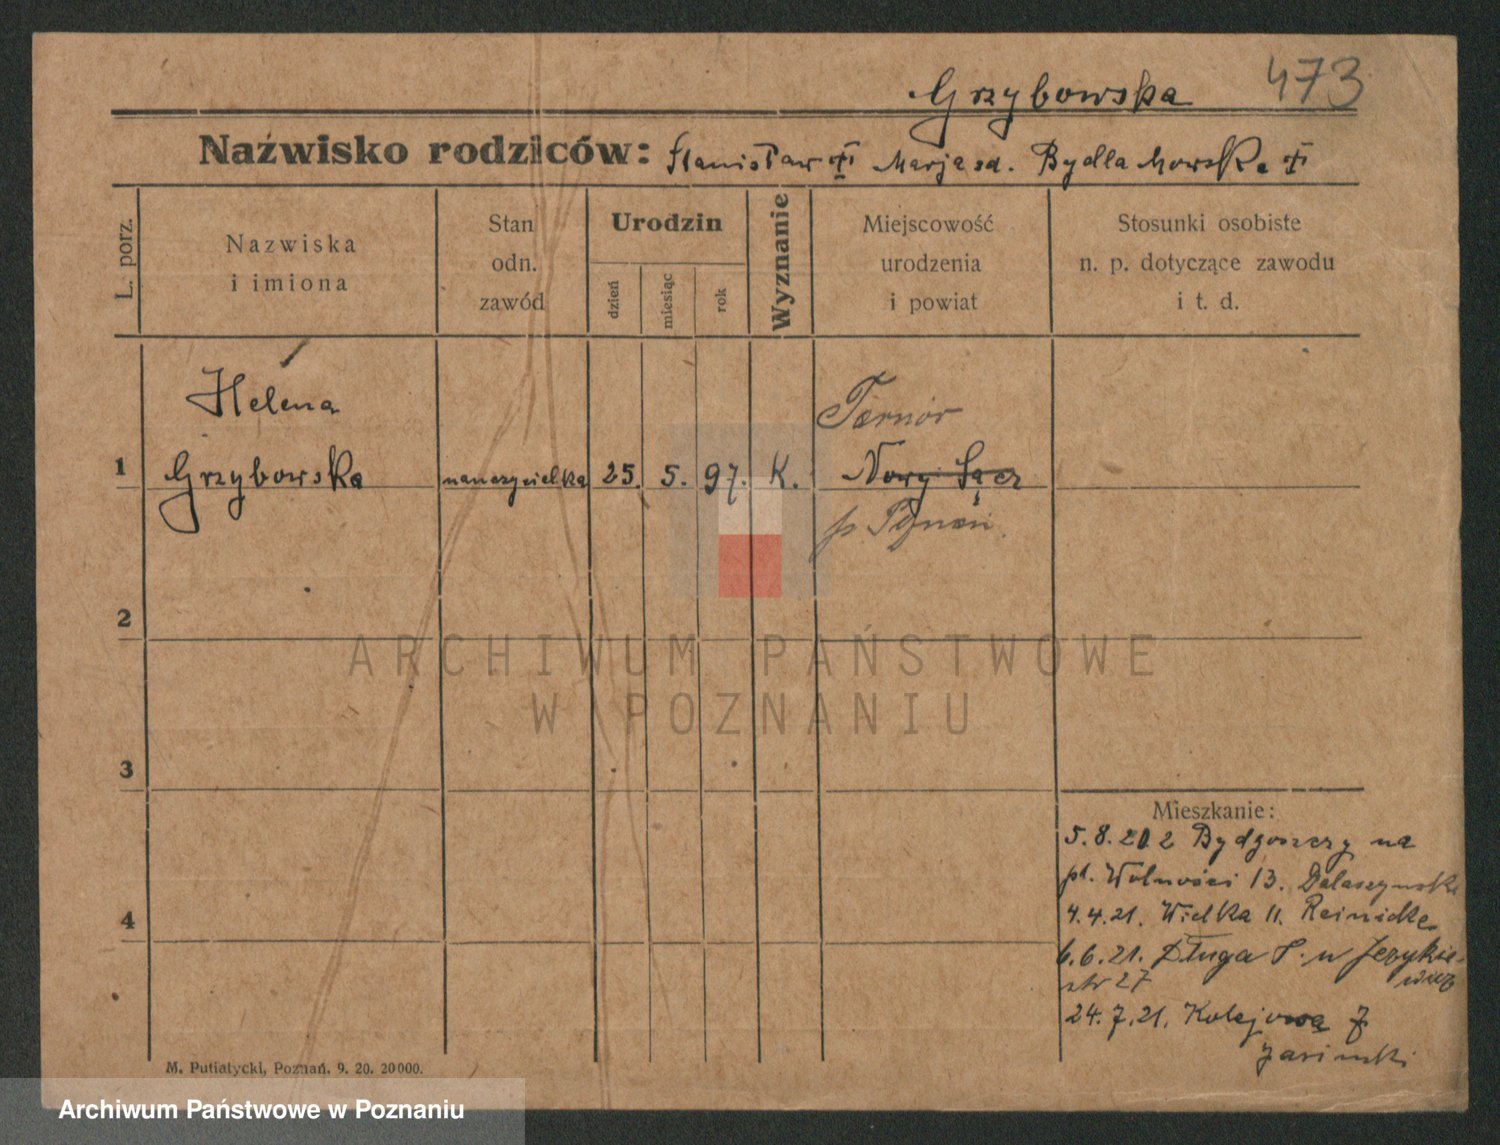 Grzybowska 473
Nazwisko rodziców: Stanisław Marja zd.
L. porz.
Nazwiska
i imiona
Stan
odn.
zawód
Urodzin
dzień
miesiąc
rok
Wyznanie
Miejscowość
urodzenia
i powiat
Stosunki osobiste
n. p. dotyczące zawodu
i t. d.
Helena
1 Grzybowska nauczycielka 25. 5. 97. K. Nowy Sącz
p. Poznań
2
3
4
ARCHIWUM PAŃSTWOWE
W POZNANIU
Mieszkanie:
5.8.20 z Bydgoszczy na
pl. Wolności 13.
4.4.21. Wielka 11.
6.6.21. Długa
24.7.21. Kolejowa 7
M. Putiatycki, Poznań. 9. 20. 20000.
Archiwum Państwowe w Poznaniu